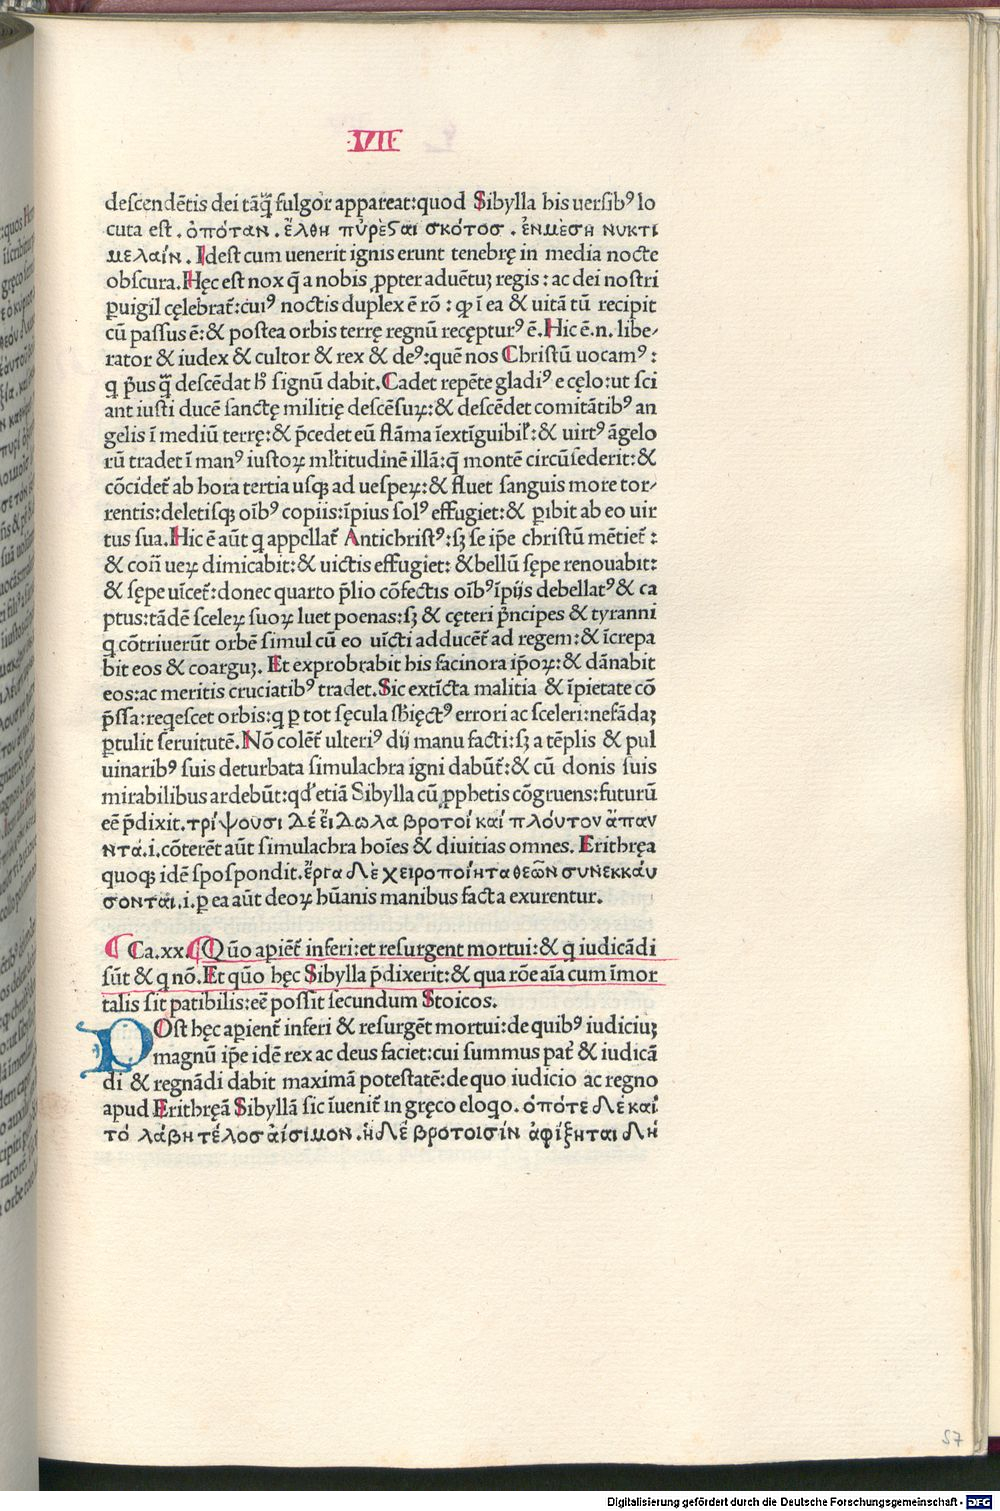 ·VII·
descendētis dei tāq̄ fulgor appareat:quod Sibylla his uersibꝰ lo
cuta est . ὁπόταν . ἔλθη πῦρὲϛαι σκότοσ . ἐνμὲση νυκτι
μελαίν . Idest cum uenerit ignis erunt tenebrę in media nocte
obscura. Hęc est nox q̄ a nobis ꝓpter aduētuꝫ regis : ac dei nostri
ꝑuigil cęlebrat̄:cuiꝰ noctis duplex ē rō : ꝙ ī ea & uitā tū recipit
cū passus ē:& postea orbis terrę regnū recępturꝰ ē. Hic ē.n. libe-
rator & iudex & cultor & rex & deꝰ:quē nos Christū uocamꝰ :
q p̄us q̄ descēdat h̄ signū dabit. Cadet repēte gladiꝰ e cęlo:ut sci
ant iusti ducē sanctę militię descēsuꝝ:& descēdet comitātibꝰ an
gelis ī mediū terrę:& p̄cedet eū flāma īextīguibil̄:& uirtꝰ āgelo
rū tradet ī manꝰ iustoꝝ ml̄titudinē illā:q̄ montē circūsederit:&
cōcidet̄ ab hora tertia usqꝫ ad uespeꝝ:& fluet sanguis more tor-
rentis:deletisqꝫ oībꝰ copiis:īpius solꝰ effugiet:& ꝑibit ab eo uir
tus sua. Hic ē aūt q appellat̄ Antichristꝰ:sꝫ se ip̄e christū mētiet̄ :
& con̄ ueꝝ dimicabit:& uictis effugiet: &bellū sępe renouabit:
& sępe uīcet̄:donec quarto p̄lio cōfectis oībꝰ īpijs debellatꝰ & ca
ptus:tādē sceleꝝ suoꝝ luet poenas:sꝫ & cęteri p̄ncipes & tyranni
q cōtriuerūt orbē simul cū eo uīcti adducēt̄ ad regem:& īcrepa
bit eos & coarguꝫ. Et exprobrabit his facinora ip̄oꝝ:& dānabit
eos:ac meritis cruciatibꝰ tradet. Sic extīcta malitia & īpietate cō
p̄ssa:reqescet orbis:q ꝑ tot sęcula sb̄ięctꝰ errori ac sceleri:nefādaꝫ
ꝑtulit seruitutē. Nō colēt̄ ulteriꝰ dij manu facti:sꝫ a tēplis & pul
uinaribꝰ suis deturbata simulachra igni dabūt̄:& cū donis suis
mirabilibus ardebūt:qd̓ etiā Sibylla cū ꝓphetis cōgruens:futurū
eē p̄dixit. τρίψουσι Δέ εἴΔωλα βροτοί καί πλόυτον ἅπαν
ντα.i.cōterēt aūt simulachra hoīes & diuitias omnes. Erithręa
quoqꝫ idē spospondit. ἔργα Δὲ χειροποίητα θεῶν συνεκκάυ
σονται.i.ꝑ ea aūt deoꝝ hūanis manibus facta exurentur.
Ca.xx. Quō apiēt̄ inferi:et resurgent mortui:& q iudicādi
sūt & q nō. Et quō hęc Sibylla p̄dixerit:& qua rōe aīa cum īmor
talis sit patibilis:eē possit secundum Stoicos.
POst hęc apient̄ inferi & resurgēt mortui:de quibꝰ iudiciuꝫ
magnū ip̄e idē rex ac deus faciet:cui summus pat̄ & iudicā
di & regnādi dabit maximā potestatē:de quo iudicio ac regno
apud Erithręā Sibyllā sic īuenit̄ in gręco eloqo. ὁπότε Δὲ καί
τό λάβη τέλοσ ἀίσιμον. ἡΔὲ βροτοισίν ἀφίξηται Δή
57
Digitalisierung gefördert durch die Deutsche Forschungsgemeinschaft - DFG